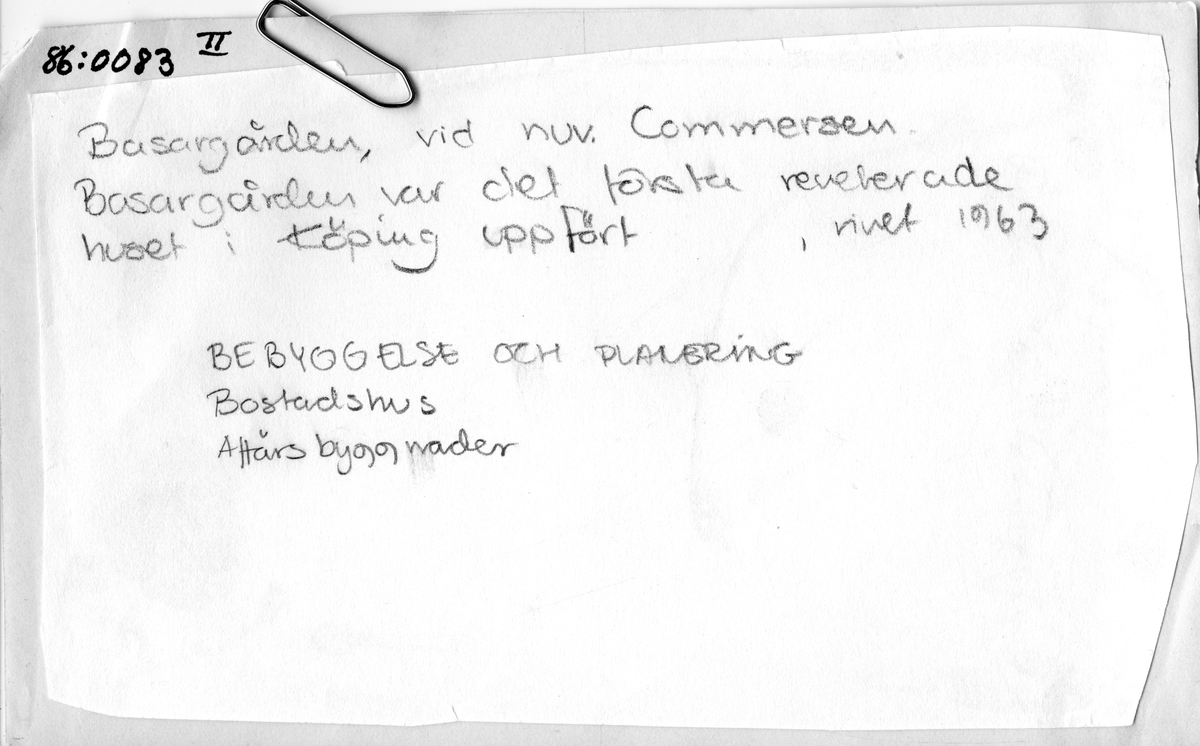 86:0083 II
Basargården, vid nuv. Commersen.
Basargården var det första reveterade
huset i Köping uppfört , rivet 1963
BEBYGGELSE OCH PLANERING
Bostadshus
Affärsbyggnader